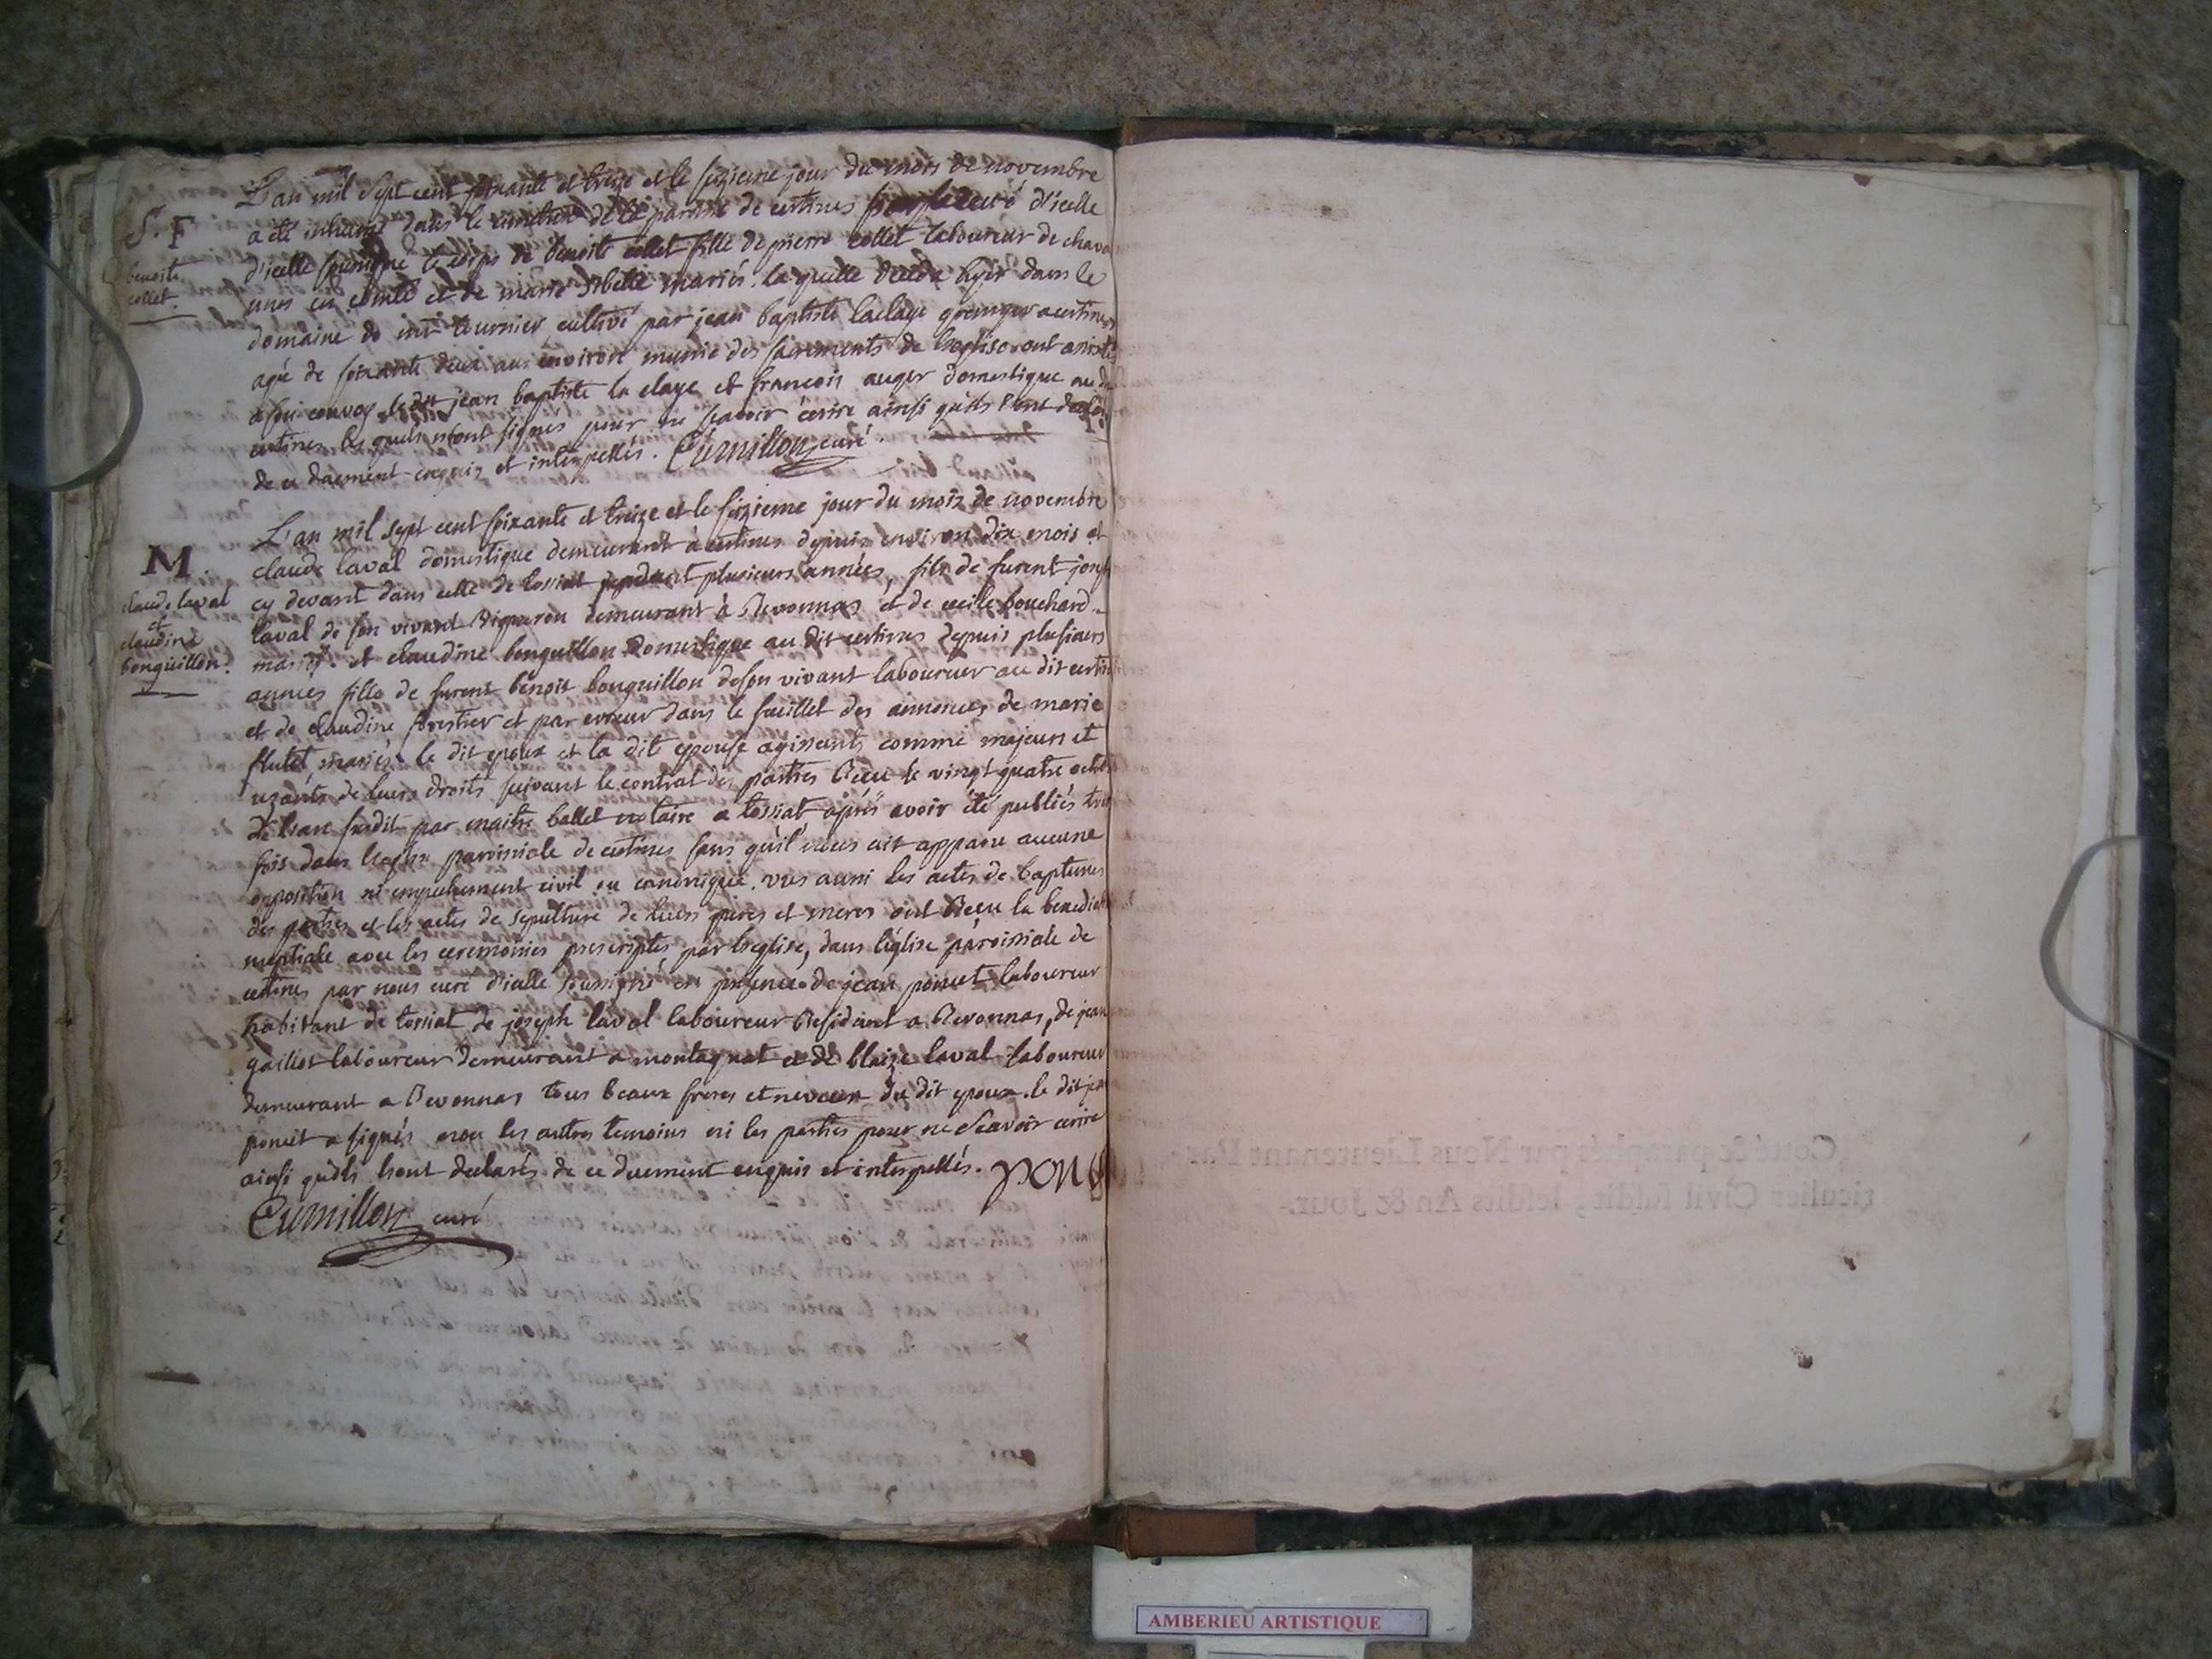 L'an mil sept cent soixante et treize et le seizieme jour du mois de novembre
S. F
a été inhumé dans le cimetiere de la paroisse de certines par le curé d'icelle
benoite
collet.
d'icelle soussigné le corps de benoite collet fille de pierre collet laboureur de chava
unes en comté et de marie sibelle mariés. la quelle deceda hyer dans le
domaine de mr tournier cultivé par jean baptiste laclaye granger a certines
agée de soixante deux ans environ munie des sacrements de l'eglise. ont assistés
a son convoy le dit jean baptiste la claye et francois auger domestique au dit
certines les quels n'ont signés pour ne scavoir écrire ainsi qu'ils l'ont
de ce duement enquis et interpellés. Cumillon curé.
M.
claude laval
et
claudine
bonguillon.
L'an mil sept cent soixante et treize et le seizieme jour du mois de novembre
claude laval domestique demeurant à certines depuis environ dix mois et
cy devant dans celle de tossiat pendant plusieurs années, fils de furent joseph
laval de son vivant vigneron demeurant à Revonnas et de cecile bouchard
mariés et claudine bonguillon domestique au dit certines depuis plusieurs
années fille de furent benoit bonguillon de son vivant laboureur au dit certines
et de claudine forestier et par erreur dans le feuillet des annonces de marie
flutet mariés. le dit epoux et la dite epouse agissants comme majeurs et
uzants de leurs droits suivant le contrat des parties Recu le vingt quatre octobre
de l'an susdit par maitre ballet notaire a tossiat après avoir été publiés trois
fois dans l'eglise paroissiale de certines sans qu'il nous ait apparu aucune
opposition ni empechement civil ou canonique. vus aussi les actes de baptemes
des parties et les actes de sepulture de leurs peres et meres ont Recu la benediction
nuptiale avec les ceremonies prescriptes par l'eglise, dans l'église paroissiale de
certines par nous curé d'icelle soussigné en presence de jean poncet laboureur
habitant de tossiat de joseph laval laboureur Residant a Revonnas, de jean
gaillot laboureur demeurant a montagnat et de blaize laval laboureur
demeurant a Revonnas tous beaux freres et neveux du dit epoux. le dit jean
poncet a signés non les autres temoins ni les parties pour ne scavoir ecrire
ainsi qu'ils l'ont declarés de ce duement enquis et interpellés. PON
Cumillon curé
Cotté & paraphés par Nous Lieutenant Par-
ticulier Civil susdit, lesdits An & Jour.
AMBERIEU ARTISTIQUE